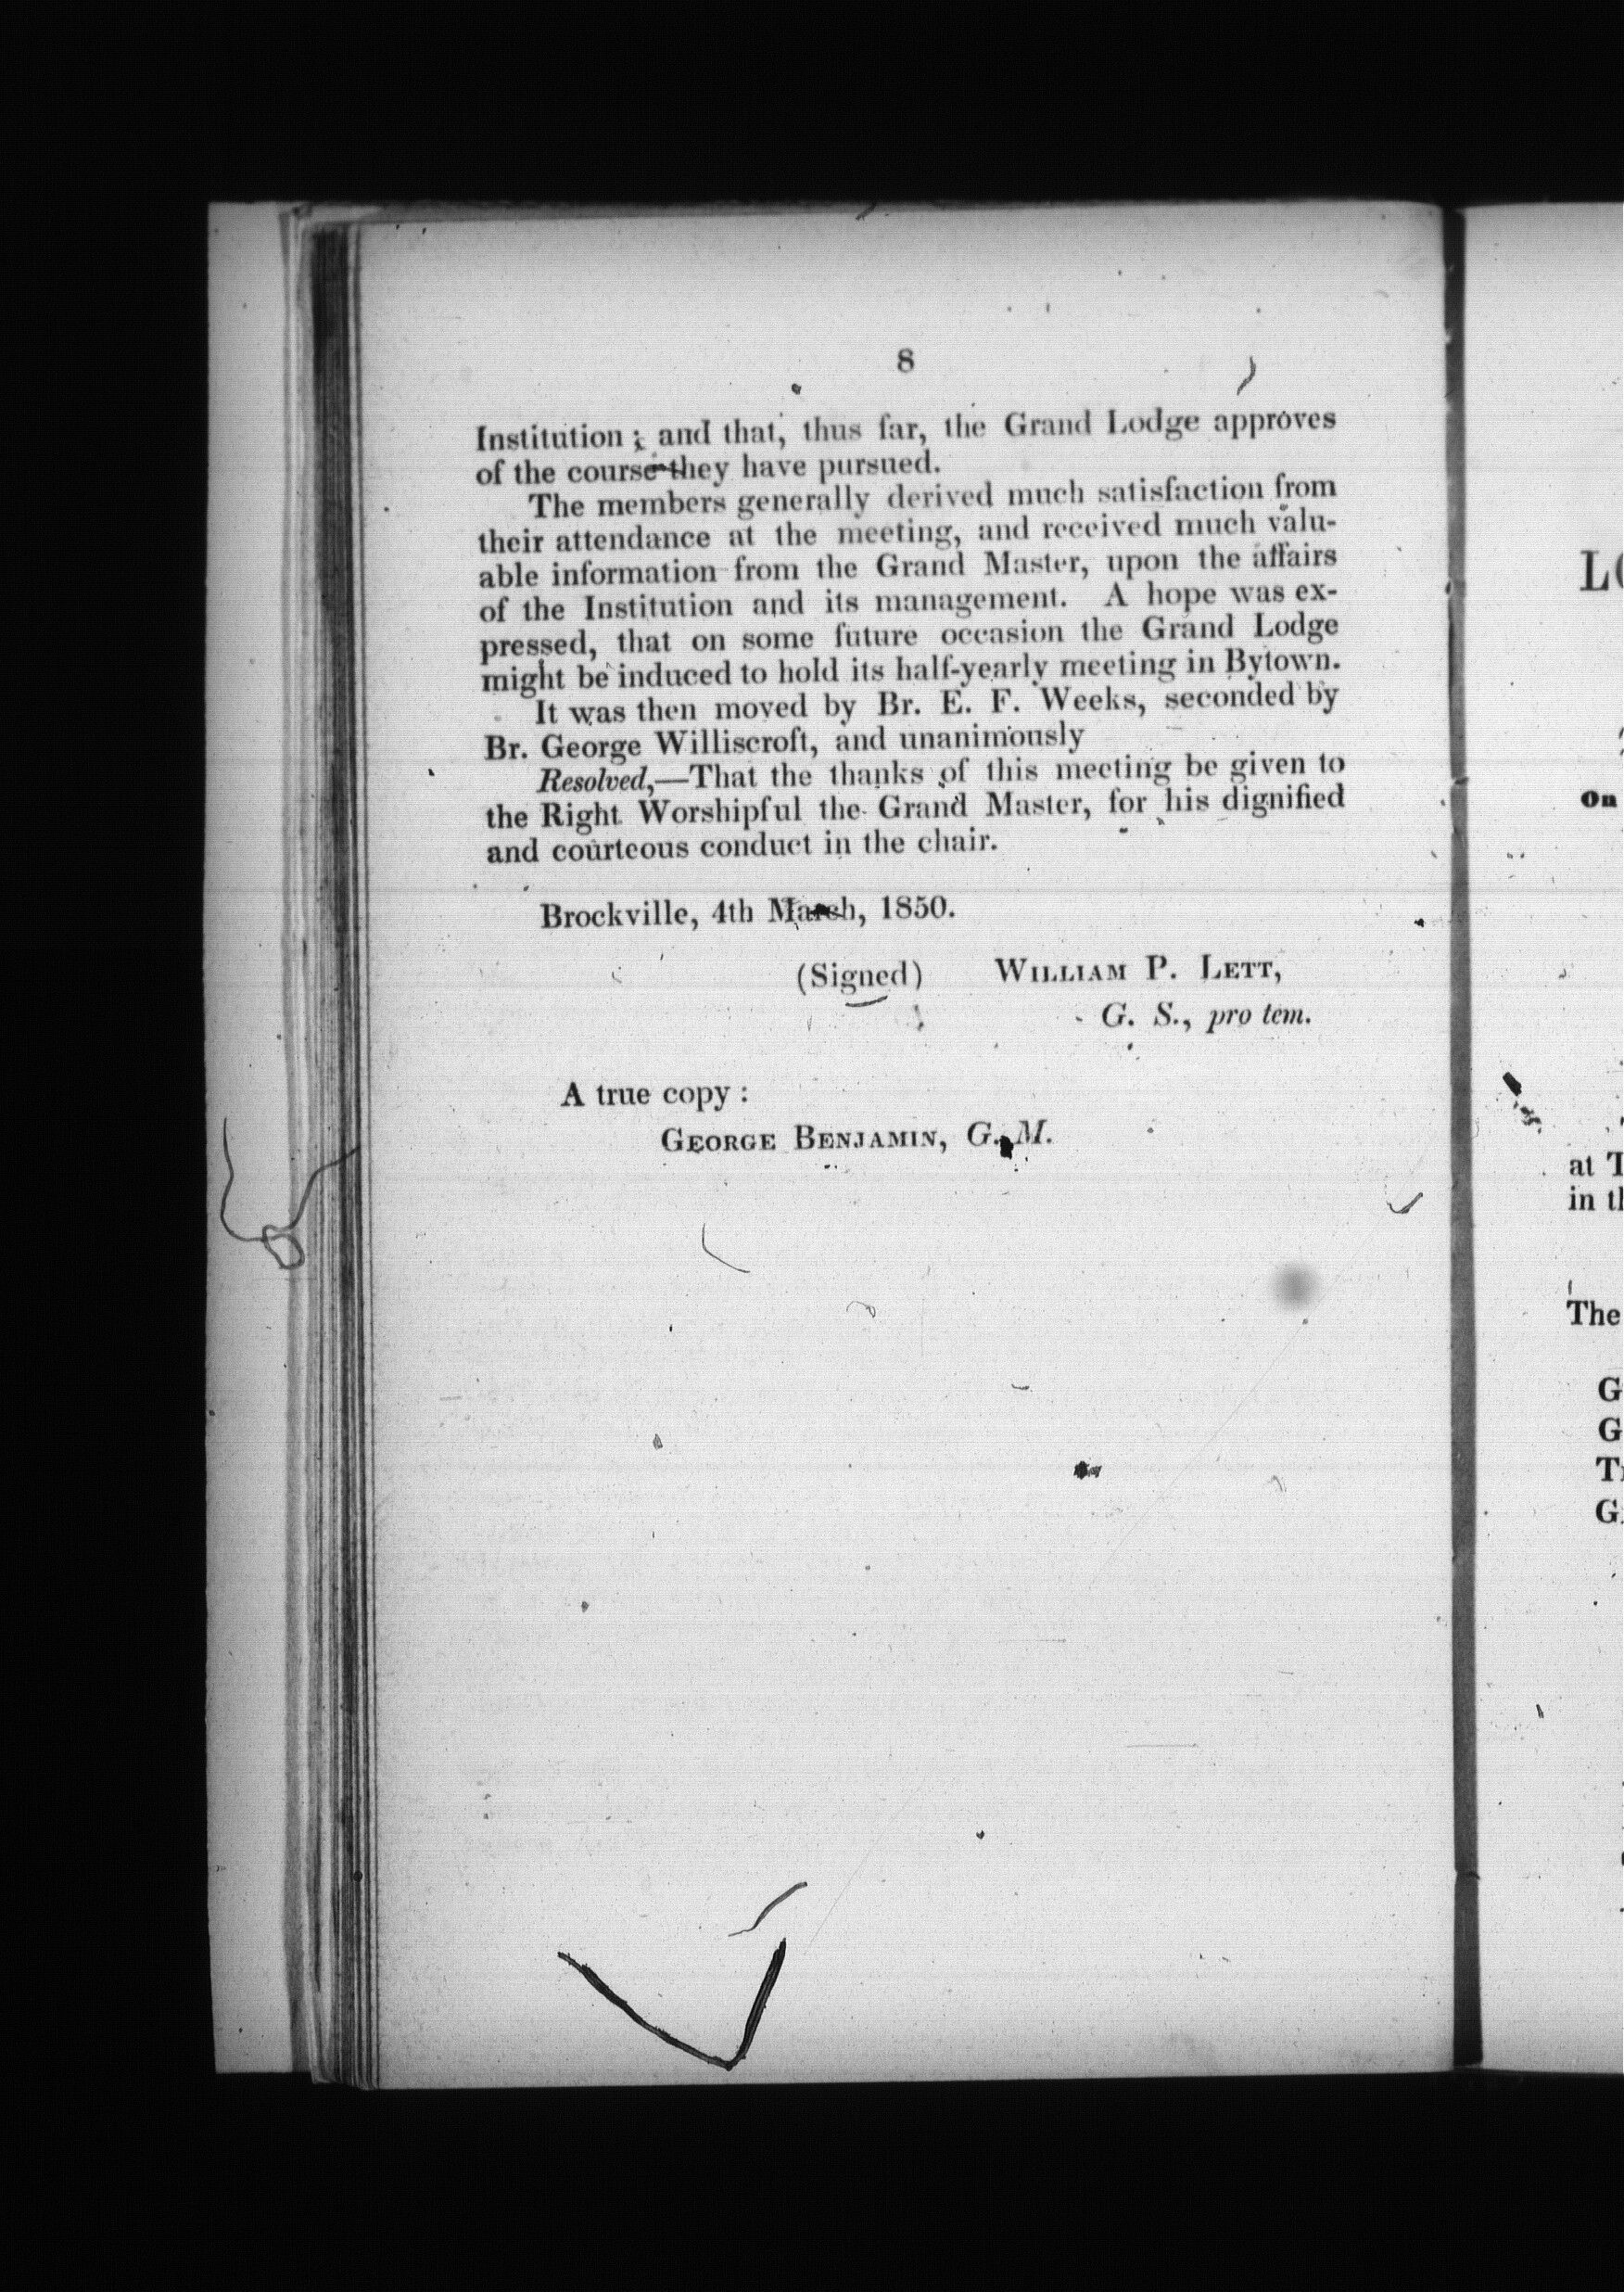 8
Institution ; and that, thus far, the Grand Lodge approves
of the course they have pursued.
The members generally derived much satisfaction from
their attendance at the meeting, and received much valu-
able information from the Grand Master, upon the affairs
of the Institution and its management. A hope was ex-
pressed, that on some future occasion the Grand Lodge
might be induced to hold its half-yearly meeting in Bytown.
It was then moved by Br. E. F. Weeks, seconded by
Br. George Williscroft, and unanimously
Resolved,—That the thanks of this meeting be given to
the Right Worshipful the Grand Master, for his dignified
and courteous conduct in the chair.
Brockville, 4th March, 1850.
(Signed) WILLIAM P. LETT,
G. S., pro tem.
A true copy :
GEORGE BENJAMIN, G. M.
On
at
in
The